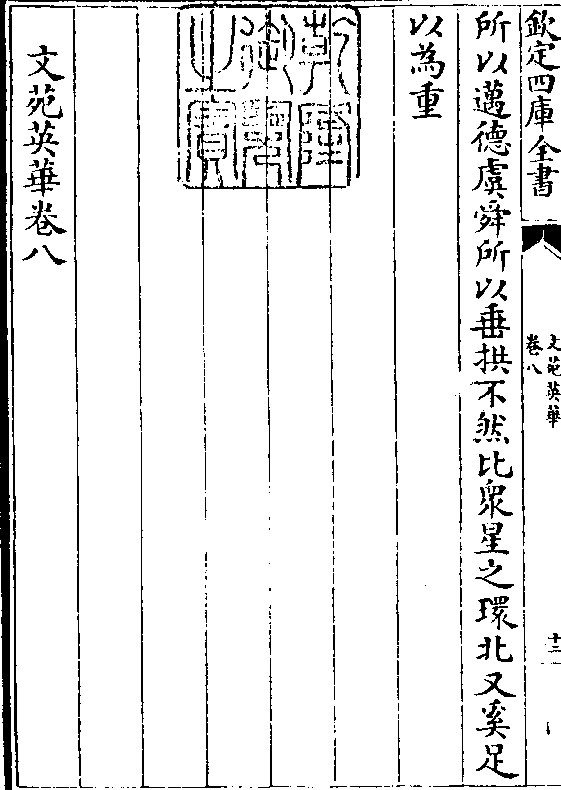 欽定四庫全書
文苑英華
卷八
十三
所以邁德虞舜所以垂拱不然比衆星之環北又奚足
以為重
乾隆
御覽
之寶
文苑英華卷八